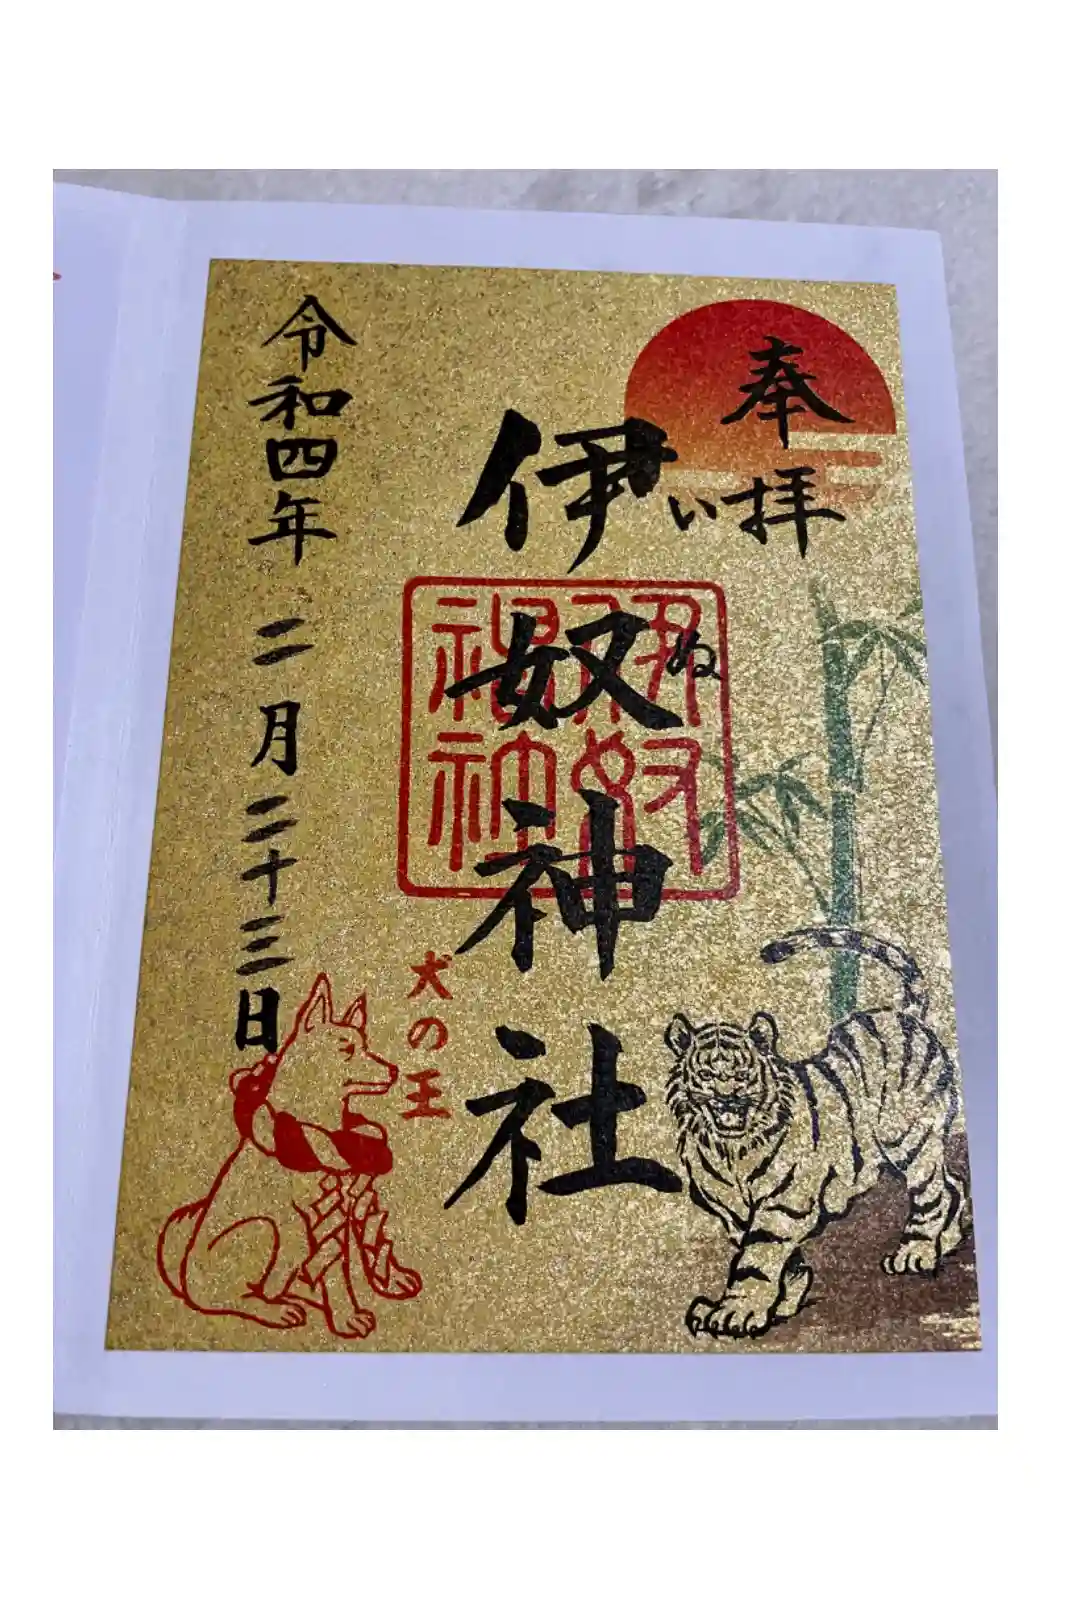 奉拝
いぬ
伊奴神社
伊奴神社
犬の王
令和四年二月二十三日